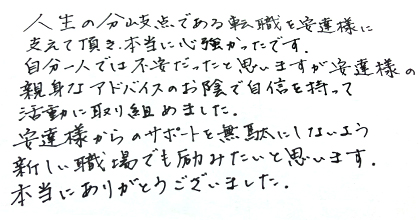 人生の分岐点である転職を安達様に
支えて頂き、本当に心強かったです。
自分一人では不安だったと思いますが安達様の
親身なアドバイスのお陰で自信を持って
活動に取り組めました。
安達様からのサポートを無駄にしないよう
新しい職場でも励みたいと思います。
本当にありがとうございました。